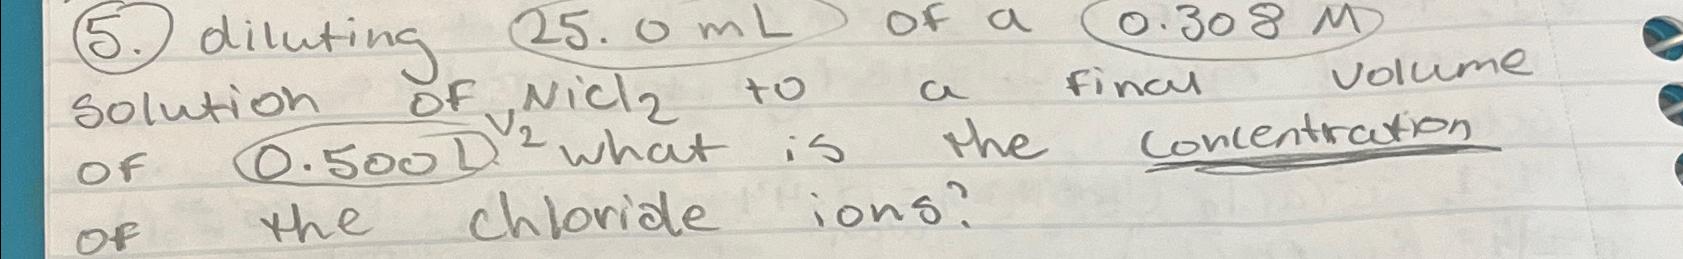 5. diluting 25.0 mL of a 0.308 M
solution of NiCl2 to a final volume
of 0.500 L V2 what is the concentration
of the chloride ions?